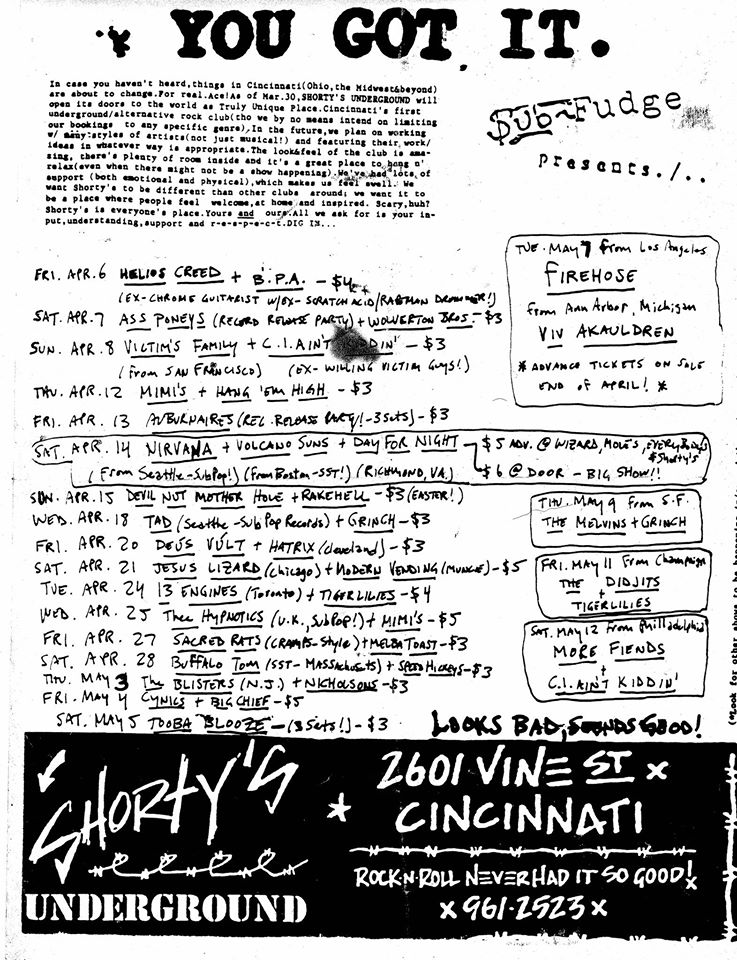 YOU GOT IT.
In case you haven't heard,things in Cincinnati(Ohio,the Midwest&beyond)
are about to change.For real.Ace!As of Mar.30,SHORTY'S UNDERGROUND will
open its doors to the world as Truly Unique Place.Cincinnati's first
underground/alternative rock club(tho we by no means intend on limiting
our bookings to any specific genre),In the future,we plan on working
w/ many:styles of artists(not just musical!) and featuring their work/
ideas in whatever way is appropriate.The look&feel of the club is ama-
zing, there's plenty of room inside and it's a great place to hang n'
relax(even when there might not be a show happening).We've had lots of
support (both emotional and physical),which makes us feel swell. We
want Shorty's to be different than other clubs around; we want it to
be a place where people feel welcome,at home and inspired. Scary,huh?
Shorty's is everyone's place.Yours and ours.All we ask for is your in-
put,understanding,support and r-e-s-p-e-c-t.DIG IN...
$ub~Fudge
presents./..
TUE. MAY 7 from Los Angeles
FIREHOSE
from Ann Arbor, Michigan
VIV AKAULDREN
* ADVANCE TICKETS ON SALE
END OF APRIL! *
FRI. APR. 6 HELIOS CREED + B.P.A. - $4
(EX-CHROME GUITARIST W/EX-SCRATCH ACID/RAPEMAN DRUMMER!)
SAT. APR. 7 ASS PONEYS (RECORD RELEASE PARTY) + WOLVERTON BROS. - $3
SUN. APR. 8 VICTIM'S FAMILY + C.I. AIN'T KIDDIN' - $3
(from SAN FRANCISCO) (EX-WILLING VICTIM GUYS!)
THU. APR. 12 MIMI'S + HANG 'EM HIGH - $3
FRI. APR. 13 AUBURNAIRES (REC. RELEASE PARTY! - 3 sets) - $3
SAT. APR. 14 NIRVANA + VOLCANO SUNS + DAY FOR NIGHT - $5 ADV. @ WIZARD, MOLE'S, EVERYBODY'S & Shorty's
(From Seattle-SubPop!) (From Boston-SST!) (RICHMOND, VA.) $6 @ DOOR - BIG SHOW!!
SUN. APR. 15 DEVIL NUT MOTHER HOLE + RAKEHELL - $3 (EASTER!)
WED. APR. 18 TAD (Seattle-SubPop Records) + GRINCH - $3
FRI. APR. 20 DEUS VULT + HATRIX (cleveland) - $3
SAT. APR. 21 JESUS LIZARD (Chicago) + MODERN VENDING (MUNCIE) - $5
TUE. APR. 24 13 ENGINES (Toronto) + TIGERLILIES - $4
WED. APR. 25 Thee HYPNOTICS (U.K., SubPop!) + MIMI'S - $5
FRI. APR. 27 SACRED RATS (CRAMPS-Style) + MELBA TOAST - $3
SAT. APR. 28 BUFFALO Tom (SST - MASSACHUSETTS) + SPEED HICKEYS - $3
THU. MAY 3 The BLISTERS (N.J.) + NICHOLSONS - $3
FRI. MAY 4 CYNICS + BIG CHIEF - $5
SAT. MAY 5 TOOBA BLOOZE - (3 Sets!) - $3
THU. MAY 9 from S.F.
THE MELVINS + GRINCH
FRI. MAY 11 From Champaign
THE DIDJITS
+
TIGERLILIES
SAT. MAY 12 from Philladelphia
MORE FIENDS
+
C.I. AIN'T KIDDIN'
LOOKS BAD, SOUNDS GOOD!
(*Look for other shows to be
SHORTY'S
UNDERGROUND
* 2601 VINE ST x
CINCINNATI
ROCK-N-ROLL NEVER HAD IT SO GOOD!
x 961-2523 x